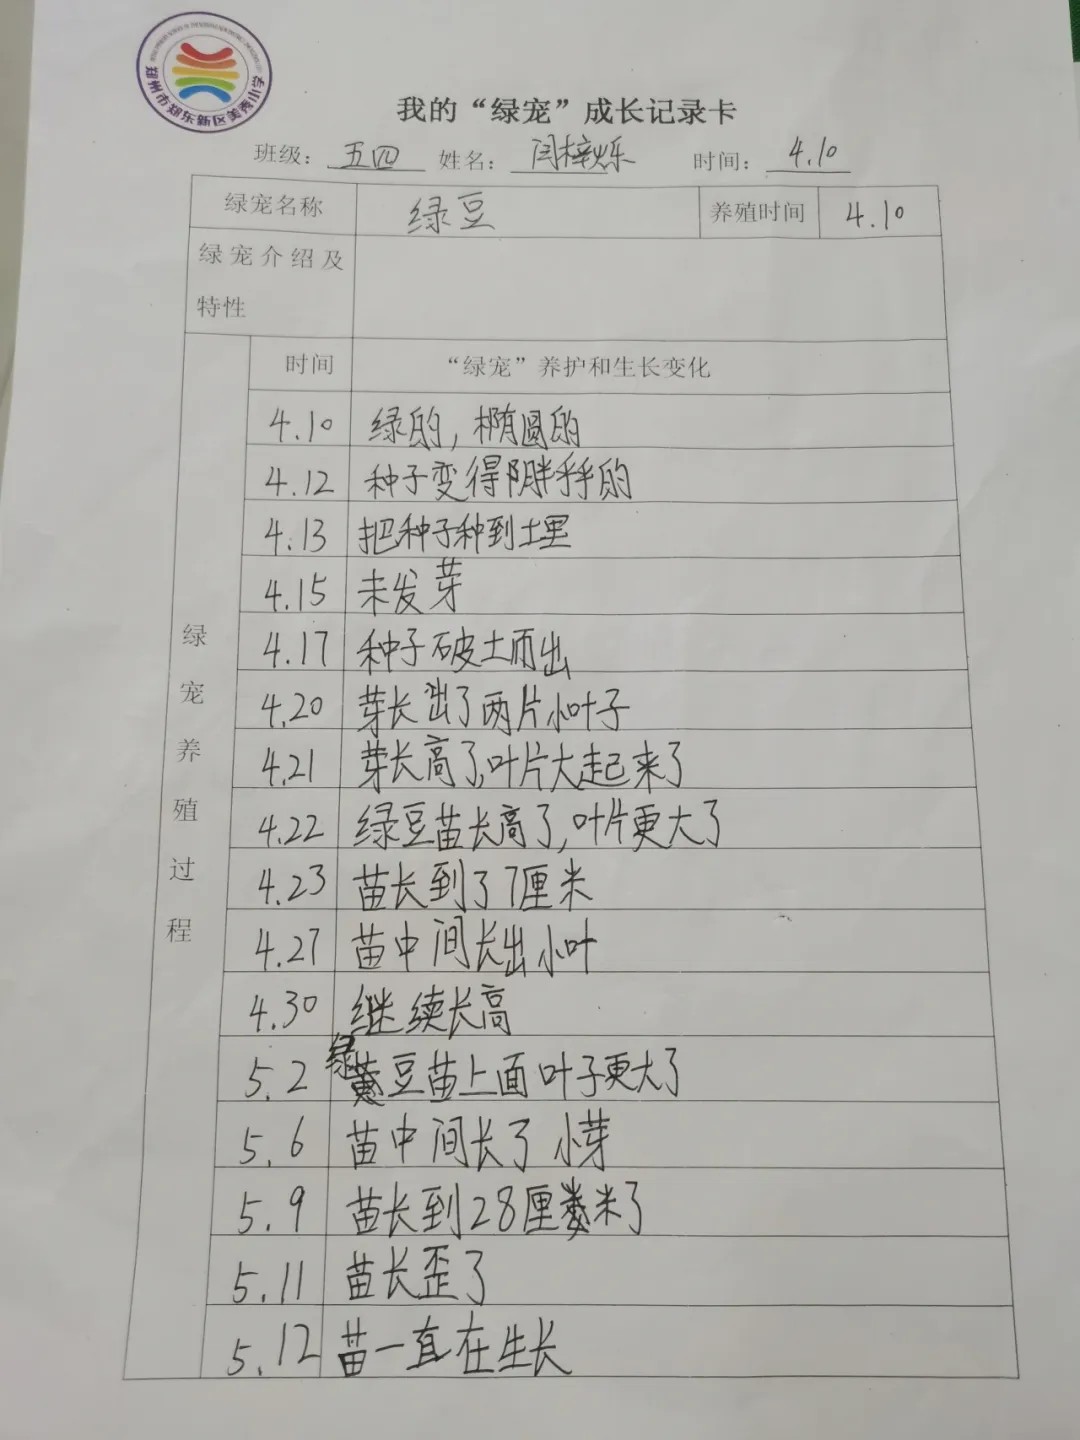 郑州市郑东新区美秀小学
我的“绿宠”成长记录卡
班级：五四 姓名：闫梓烁 时间：4.10
绿宠名称 绿豆 养殖时间 4.10
绿宠介绍及
特性
时间 “绿宠”养护和生长变化
绿宠养殖过程
4.10 绿的，椭圆的
4.12 种子变得胖乎乎的
4.13 把种子种到土里
4.15 未发芽
4.17 种子破土而出
4.20 芽长出了两片小叶子
4.21 芽长高了，叶片大起来了
4.22 绿豆苗长高了，叶片更大了
4.23 苗长到了7厘米
4.27 苗中间长出小叶
4.30 继续长高
5.2 绿豆苗上面叶子更大了
5.6 苗中间长了小芽
5.9 苗长到28厘米了
5.11 苗长歪了
5.12 苗一直在生长